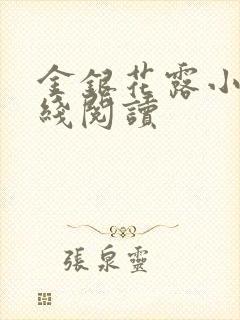 金銀花露小
綫閱讀
張泉靈